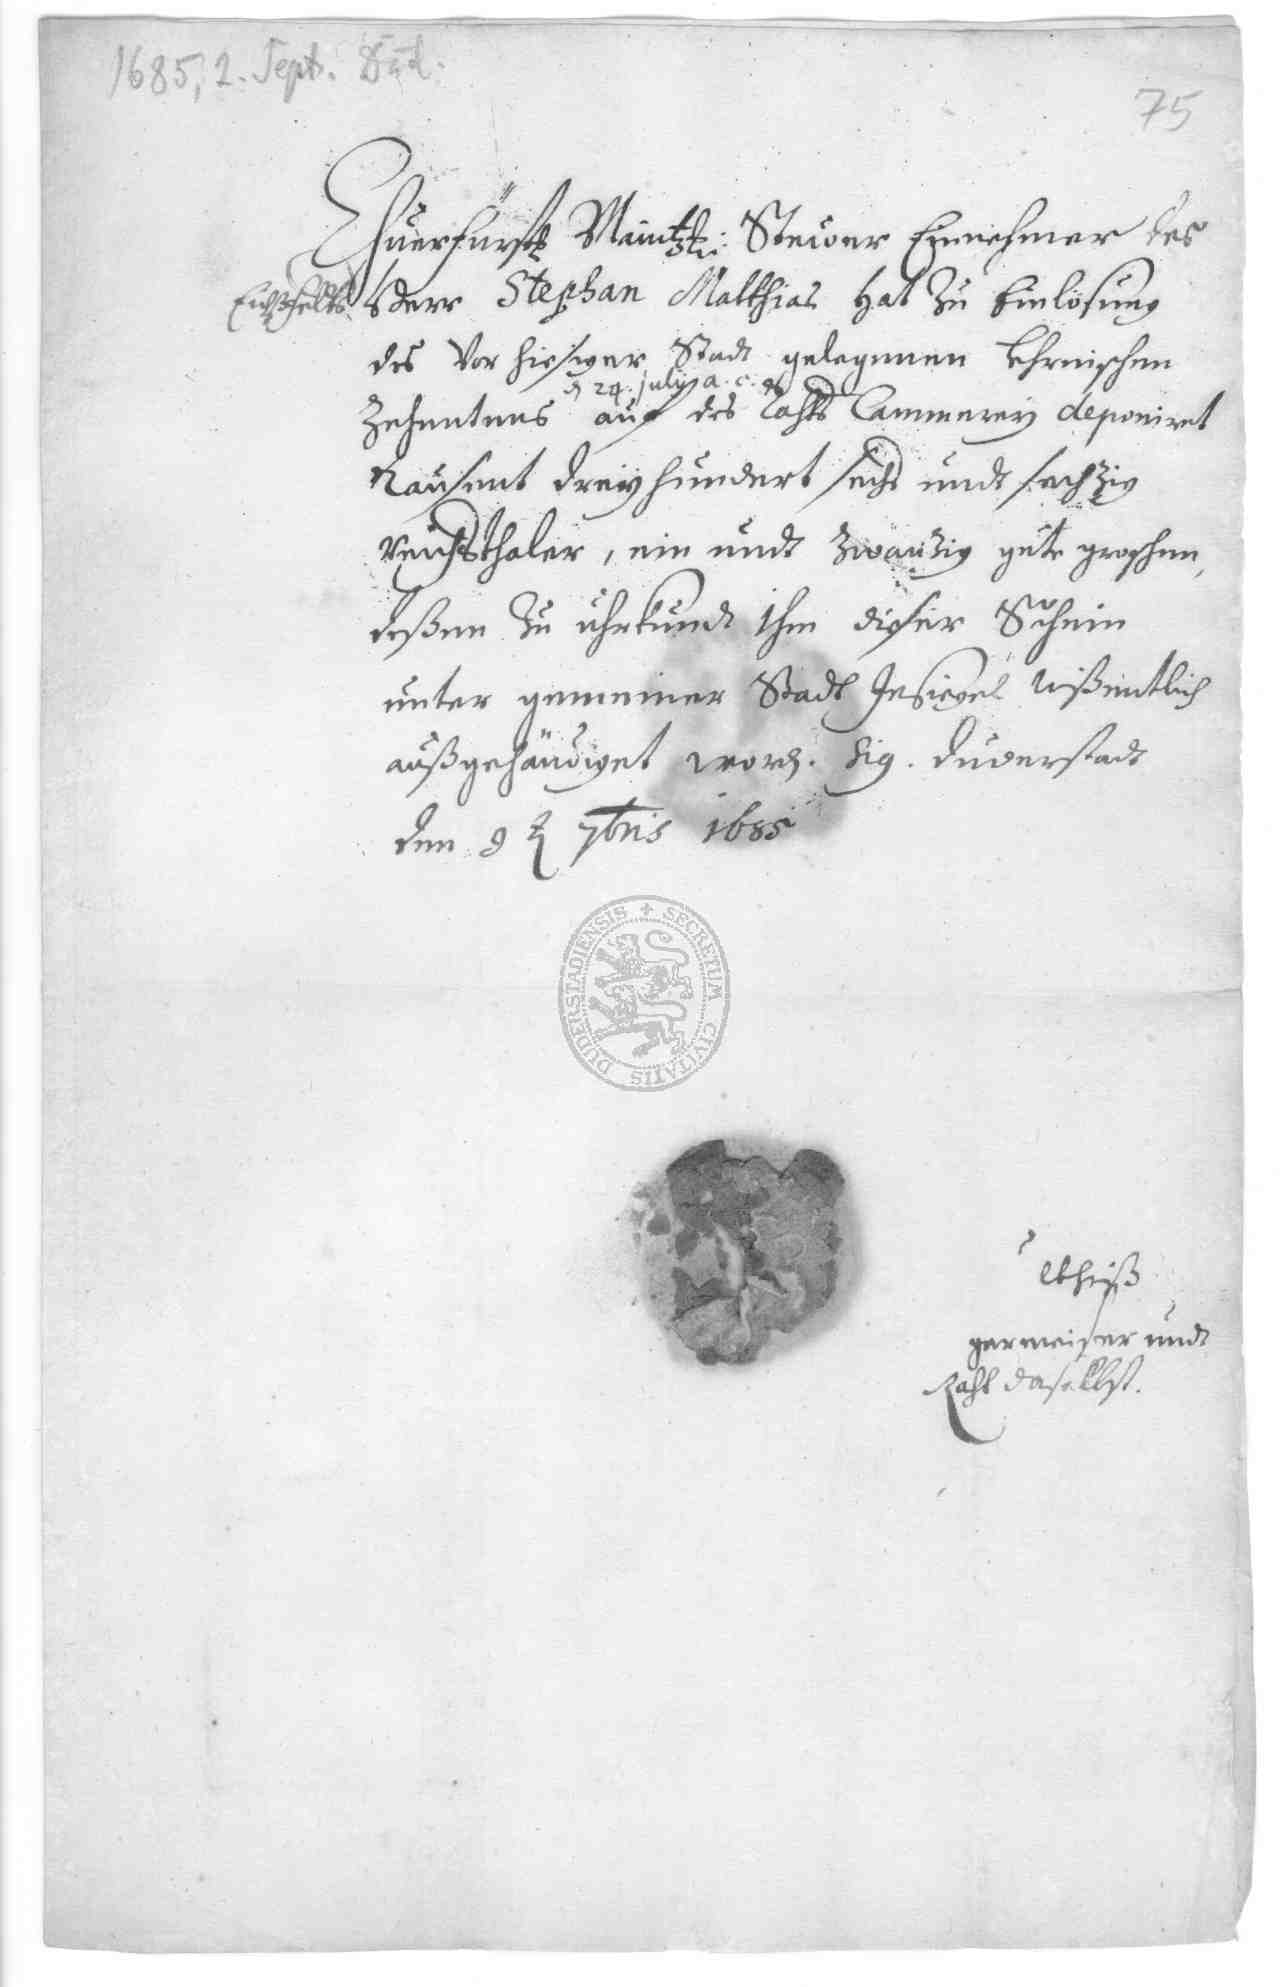 1685, 2. Sept. Dud.
75
Chuerfürstl Maintz: Steüer Einnehmer des
Eichßfelds Herr Stephan Matthias hat zu Einlösung
des vor hiesiger Stadt gelegenen Ehrnischen
d 24. july a. c.
Zehentens auf des Rahts Cammerey deponiret
Tausent dreyhundert sechs undt sechzig
Reichsthaler, ein undt zwanzig gute groschen,
deßen zu uhrkundt ihm dieser Schein
unter gemeiner Stadt Insiegel wißentlich
außgehändiget word. Sig. Duderstadt
den 2 7bris 1685
SECRETUM CIVITATIS DUDERSTADIENSIS
germeister undt
Raht daselbst.